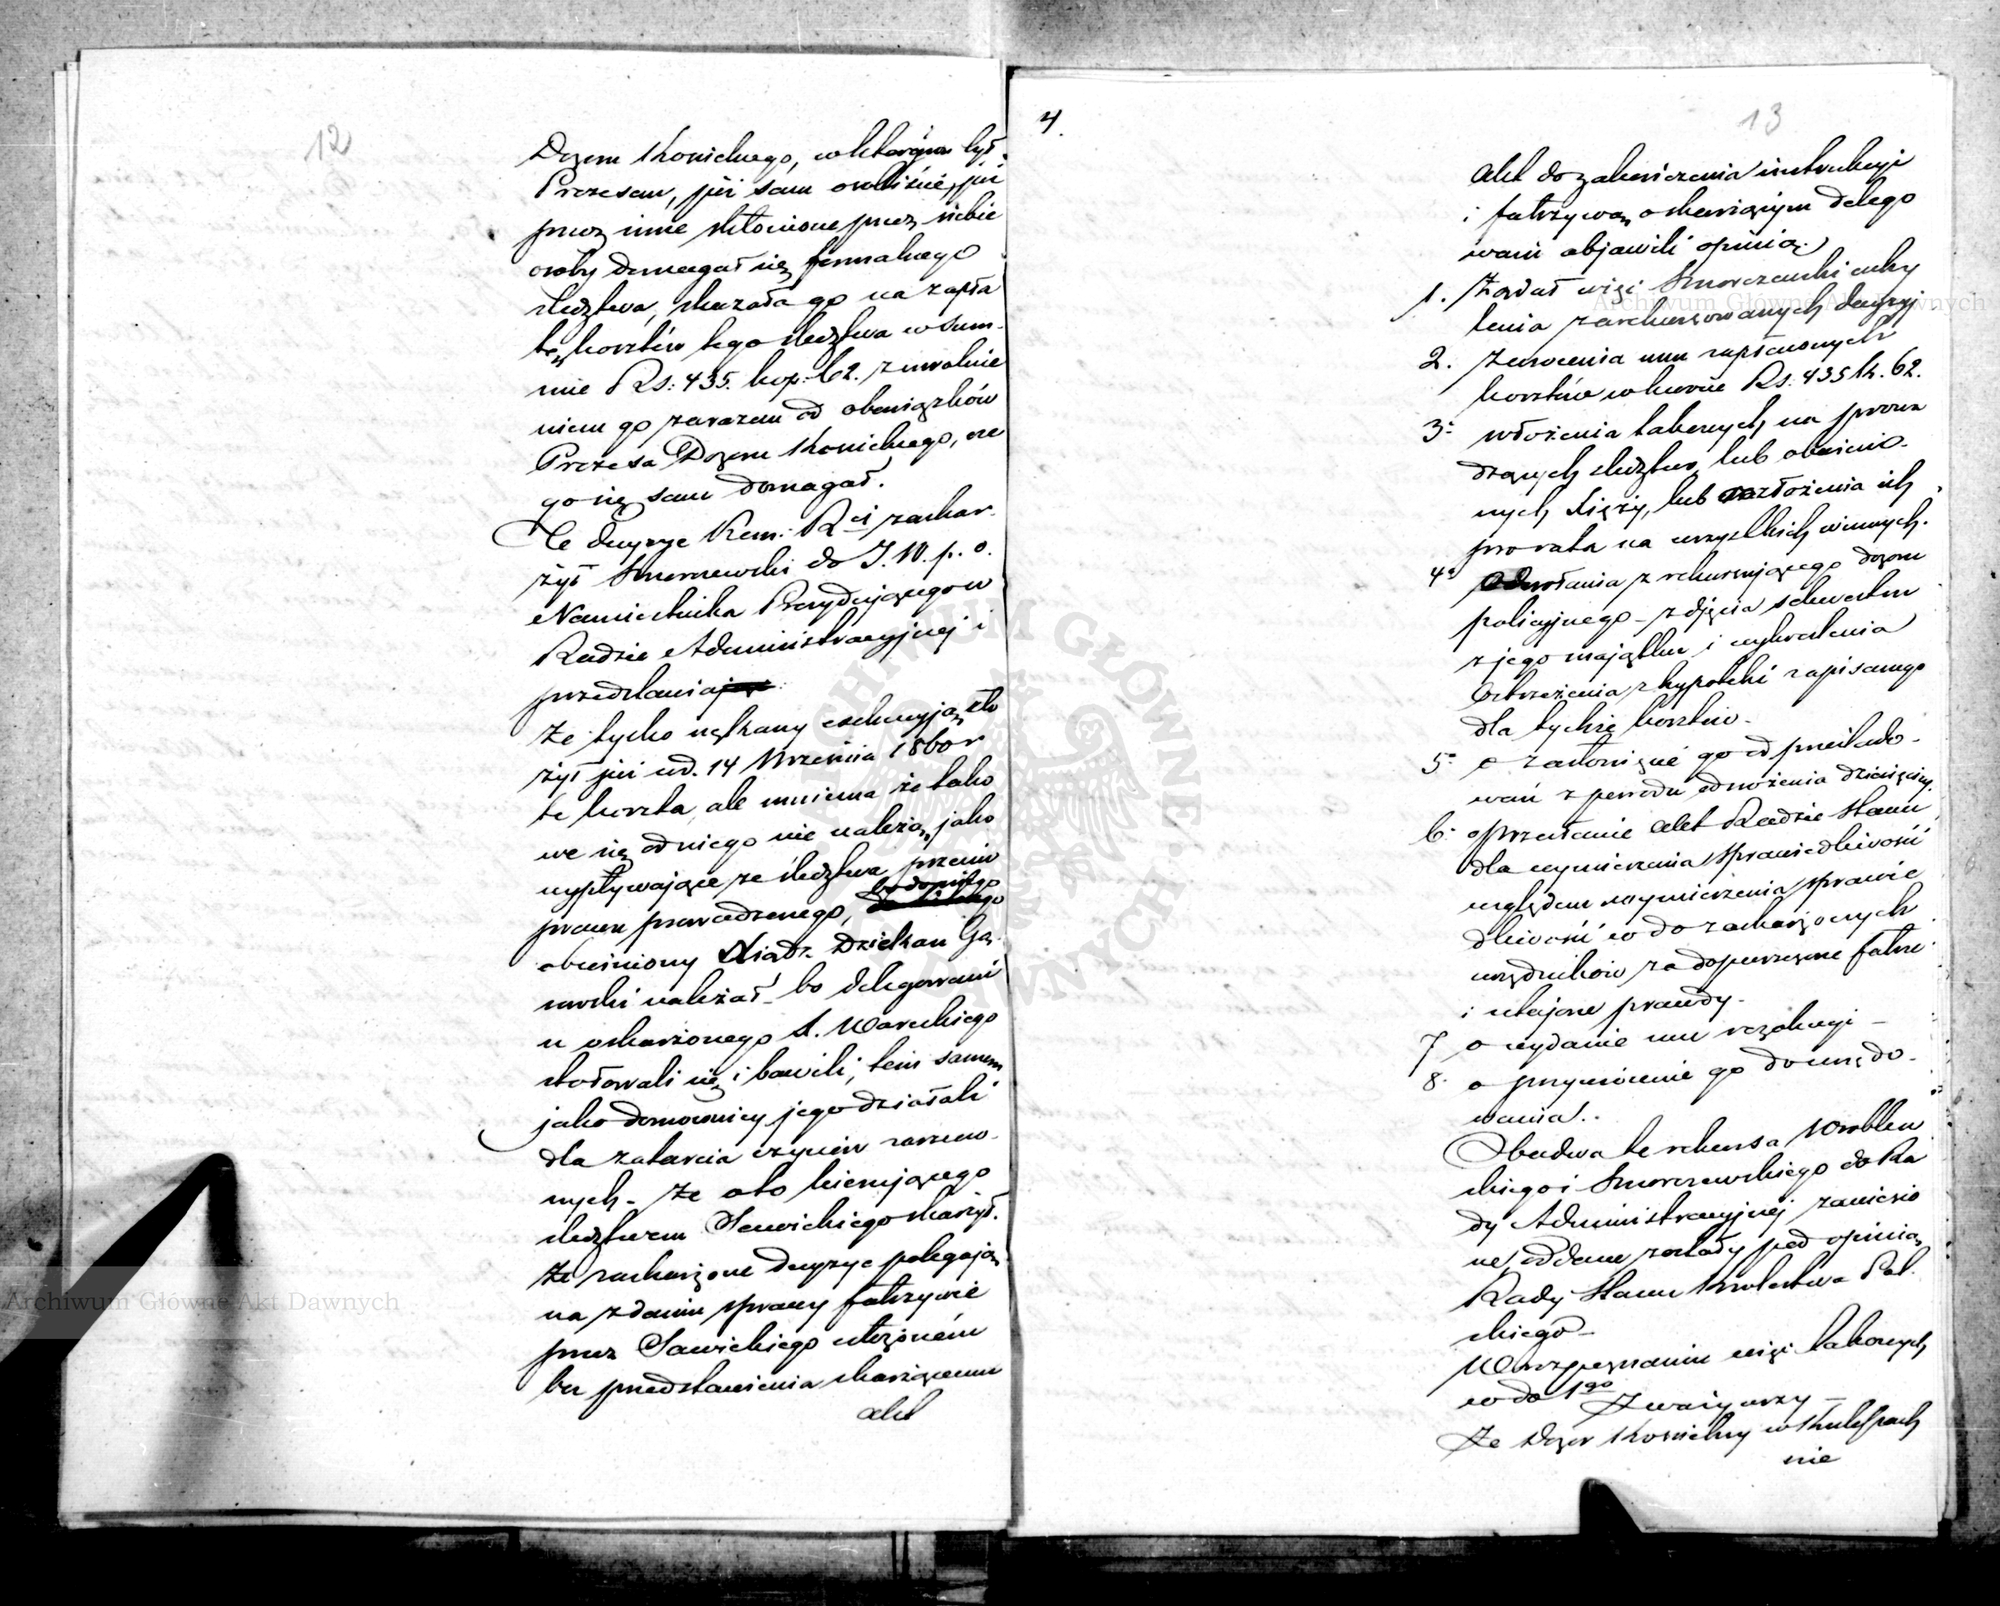 12
Dozoru Kościelnego, w którym był
Prezesem, już sam osobiście, już
przez inne skłonione przez siebie
osoby domagał się formalnego
śledztwa, skazała go na zapła
tę kosztów tego śledztwa w sum-
mie Rs: 435. kop: 62. z uwolnie
niem go zarazem od obowiązków
Prezesa Dozoru Kościelnego, cze
go się sam domagał.
Tę decyzję Kom: R ci zaskar-
żył do J. W. p. o.
Namiestnika Prezydującego w
Radzie Administracyjnej i
przedstawia
że tylko nękany exekucyją zło
żył już w d. 14 Września 1860 r
te koszta, ale mniema że tako
we się od niego nie należą, jako
wypływające ze śledztwa przeciw
prawu prowadzonego,
obwiniony Dziekan Gą-
należał - bo delegowani
u oskarżonego X. Wareckiego
stołowali się i bawili, tem samem
jako domownicy jego działali
dla zatarcia czynów zarzuco-
nych - że o to kierującego
śledztwem Sawickiego skarżył.
że zaskarżone decyzje polegają
na zdaniu sprawy fałszywie
przez Sawickiego ułożonem
bez przedstawienia skarżącemu
akt
4.
13
akt do zakończenia instrukcyi
i fałszywą o skarżącym delego
wani objawili opinią.
1. Żądał więc Smorczewski uchy
lenia zarekursowanych decyzyj.
2. Zwrócenia mu zapłaconych
kosztów w kwocie Rs. 435 k. 62.
3. włożenia takowych na prowa
dzących śledztwo, lub obwinio-
nych Xięży, lub rozłożenia ich
pro rata na wszystkich winnych.
4. z rekursującego dozoru
policyjnego - zdjęcia sekwestru
z jego majątku i wykreślenia
Ostrzeżenia z hypoteki zapisanego
dla tychże kosztów.
5. o zasłonięcie go od prześlado-
wań z powodu odnożenia dziesięciny.
6. o przesłanie akt Radzie Stanu
dla wymierzenia sprawiedliwości
względem wymierzenia sprawie
dliwości co do zaskarżonych
urzędników za dopuszczone fałsze
i utajone prawdy.
7 o wydanie mu rezolucyi -
8. o przywrócenie go do urzędo-
wania.
Obadwa te rekursa Wroblew
skiego i Smorczewskiego do Ra
dy Administracyjnej zaniesio
ne, oddane zostały pod opinią
Rady Stanu Królestwa Pol-
skiego -
W rozpoznaniu więc takowych
co do 1go Zważywszy -
Że Dozór Kościelny w
nie
Archiwum Główne Akt Dawnych
Archiwum Główne Akt Dawnych
ARCHIWUM GŁÓWNE AKT DAWNYCH